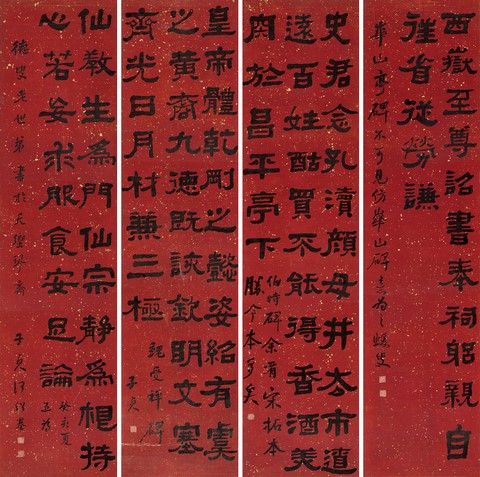 西嶽至尊詔書奉祠躬親自
徃省從勞謙
華山亭碑不可見仿華山碑意為之蝯叟
史君念孔瀆顏母井去市道
遠百姓酤買不能得香酒美
肉於昌平亭下
伯時碑余有宋拓本
勝今本多矣
皇帝體乾剛之懿姿紹有虞
之黃裔九德既該欽明文塞
齊光日月材兼三極
魏受禪碑
子貞
仙教生為門仙宗靜為根持
心若妄求服食安旦論
癸亥夏
老世弟書於天琴齋
子貞何紹基